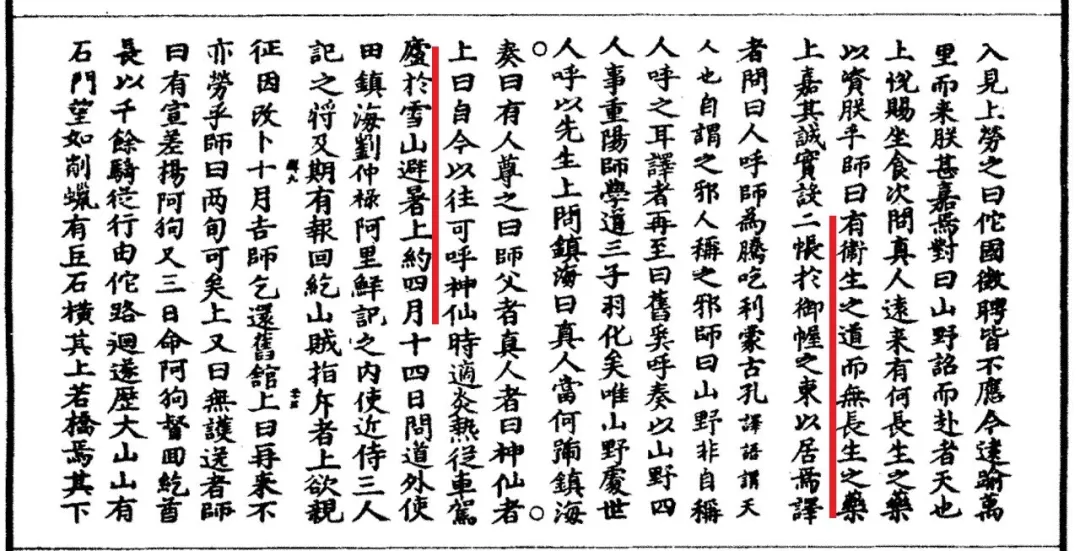 入見上勞之曰佗國徵聘皆不應今遠踰萬
里而来朕甚嘉焉對曰山野詔而赴者天也
上恱賜坐食次問真人遠来有何長生之藥
以資朕乎師曰有衞生之道而無長生之藥
上嘉其誠實設二帳於御幄之東以居焉譯
者問曰人呼師為騰吃利蒙古孔譯語謂天
人也自謂之邪人稱之邪師曰山野非自稱
人呼之耳譯者再至曰舊奚呼奏以山野四
人事重陽師學道三子羽化矣唯山野處世
人呼以先生上問鎮海曰真人當何號鎮海
奏曰有人尊之曰師父者真人者曰神仙者
上曰自今以往可呼神仙時適炎熱從車駕
廬於雪山避暑上約四月十四日問道外使
田鎮海劉仲祿阿里鮮記之内使近侍三人
記之將及期有報回紇山賊指斥者上欲親
征因改卜十月吉師乞還舊舘上曰再来不
亦勞乎師曰两旬可矣上又曰無護送者師
曰有宣差楊阿狗又三日命阿狗督回紇酋
長以千餘騎從行由佗路迴遂歷大山山有
石門望如削蠟有巨石横其上若橋焉其下